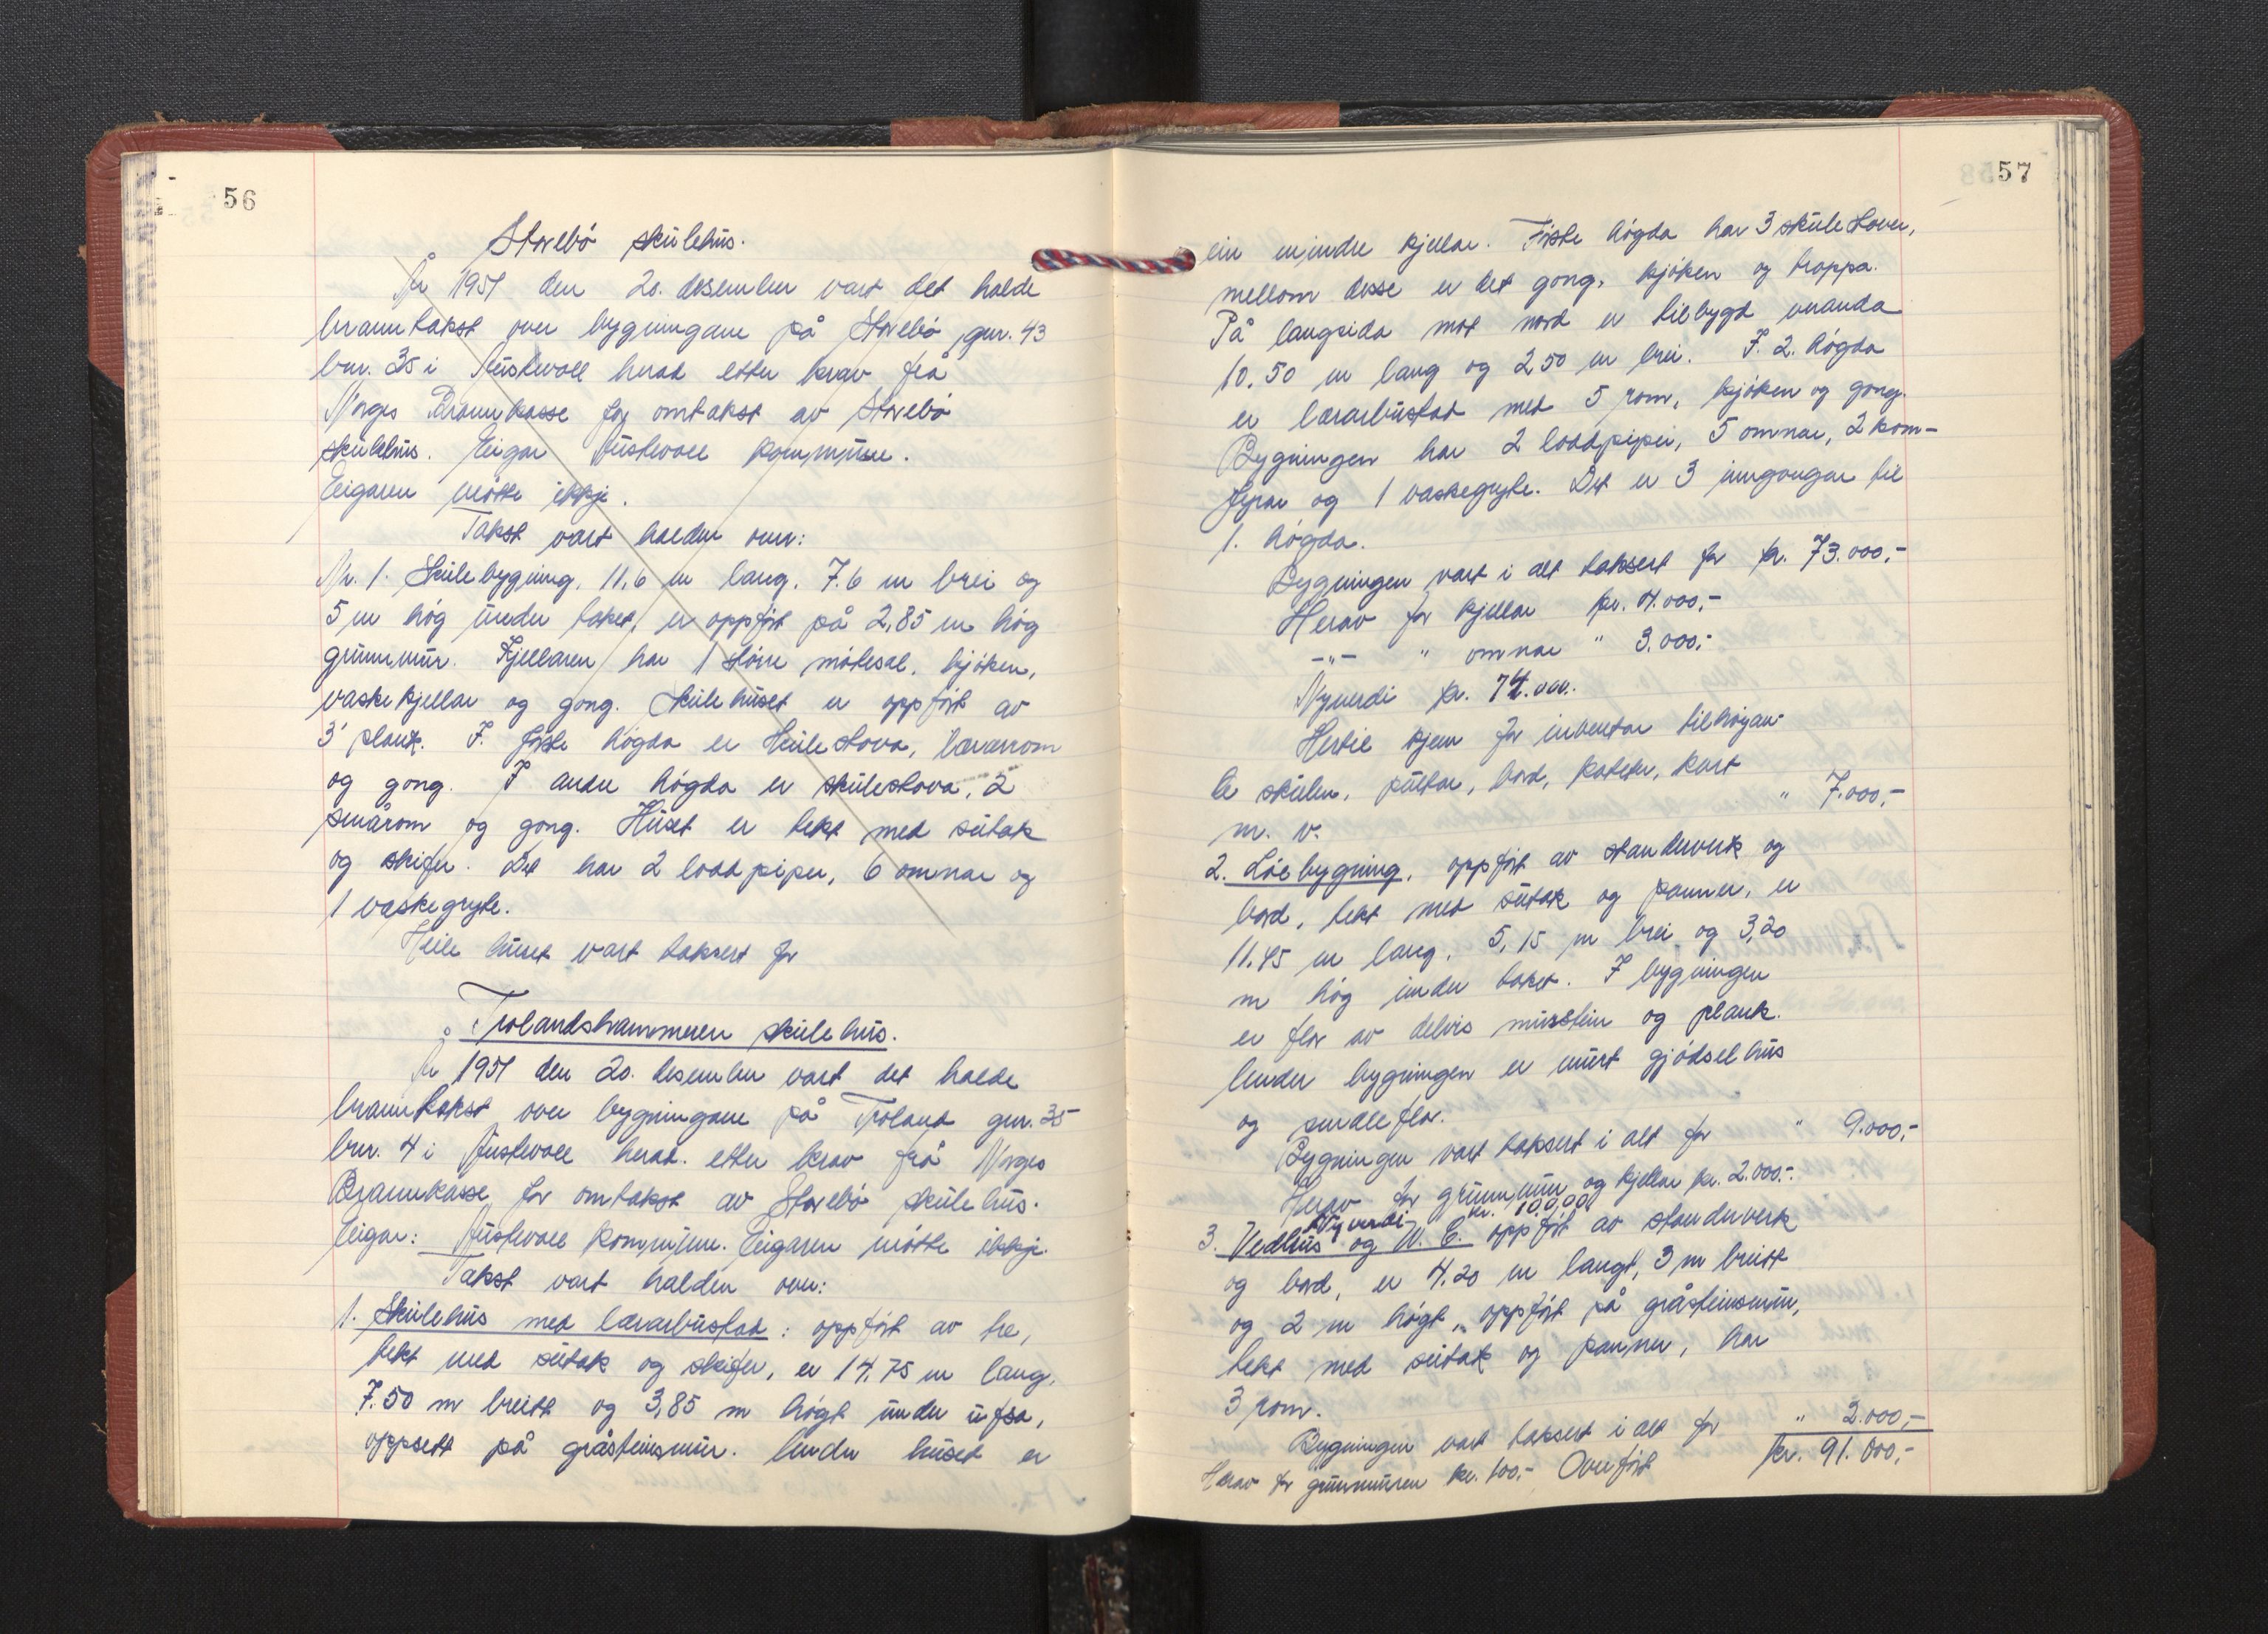 56
Storebö skúlehús.
År 1951 den 20. desember vart det halde
branntakst over bygningane på Storebö gnr. 43
bnr. 35 i Austevoll herad etter krav frå
Norges Brannkasse for omtakst av Storebö
skúlehús. Eigar Austevoll kommúne.
Eigaren mötte ikkje.
Takst vart halden over:
Nr. 1. Skúlebygning, 11,6 m lang, 7.6 m brei og
5 m hög únder taket, er oppfört på 2,85 m hög
grúnnmúr. Kjellaren har 1 större mötesal, kjöken,
vaskekjellar og gong. Skúlehúset er oppfört av
3" plank. I förste högda er skúlestova, lærarrom
og gong. I andre högda er skúlestova, 2
smårom og gong. Húset er tekt med sútak
og skifer. Det har 2 loddpiper, 6 omnar og
1 vaskegryte.
Heile húset vart taksert for
Trolandshammeren skúlehús.
År 1951 den 20. desember vart det halde
branntakst over bygningane på Troland gnr. 35
bnr. 4 i Austevoll herad. etter krav frå Norges
Brannkasse for omtakst av Storebö skúlehús.
Eigar: Austevoll kommúne. Eigaren mötte ikkje.
Takst vart halden over:
1. Skúlehús med lærarbústad: oppfört av tre,
tekt med sútak og skifer, er 14,75 m lang,
7.50 m breitt og 3,85 m högt únder úfsa,
oppsett på gråsteinsmúr. Under húset er
57
ein mindre kjellar. Förste högda har 3 skúlestover,
mellom desse er det gong, kjöken og troppa.
På langsida mot nord er tilbygd veranda
10.50 m lang og 2,50 m brei. I 2. högda
er lærarbústad med 5 rom, kjöken og gong.
Bygningen har 2 loddpiper, 5 omnar, 2 kom-
fyrar og 1 vaskegryte. Det er 3 inngongar til
1. högda.
Bygningen vart i alt taksert for kr. 73.000,-
Herav for kjellar kr. 4.000,-
-"- " omnar " 3.000,-
Nyverdi kr. 74.000.
Hertil kjem for inventar tilhöyan-
de skúlen, púltar, bord, kateter, kart
m. v. " 7.000,-
2. Löebygning, oppfört av standerverk og
bord, tekt med sútak og panner, er
11.45 m lang, 5,15 m brei og 3,20
m hög únder taket. I bygningen
er flor av delvis múrstein og plank.
Under bygningen er múrt gjödselhús
og smalleflor.
Bygningen vart taksert i alt for " 9.000,-
Herav for grúnnmúr og kjellar kr. 2.000.-
Nyverdi kr. 10.000
3. Vedhús og W. C. oppfört av standerverk
og bord, er 4.20 m langt, 3 m breitt
og 2 m högt, oppfört på gråsteinsmúr,
tekt med sútak og panner, har
3 rom.
Bygningen vart taksert i alt for " 2.000,-
Herav for grúnnmúren kr. 100,- Overfört kr. 91.000,-